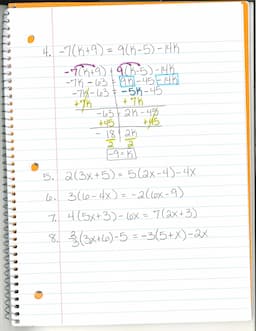 4. -7(k+9) = 9(k-5) - 14k
-7(k+9) = 9(k-5) - 14k
-7k - 63 = 9k - 45 - 14k
-7k - 63 = -5k - 45
+7k +7k
-63 = 2k - 45
+45 +45
-18 = 2k
2 2
-9 = k
5. 2(3x+5) = 5(2x-4) - 4x
6. 3(6-4x) = -2(6x-9)
7. 4(5x+3) - 6x = 7(2x+3)
8. (3x+6) - 5 = -3(5+x) - 2x